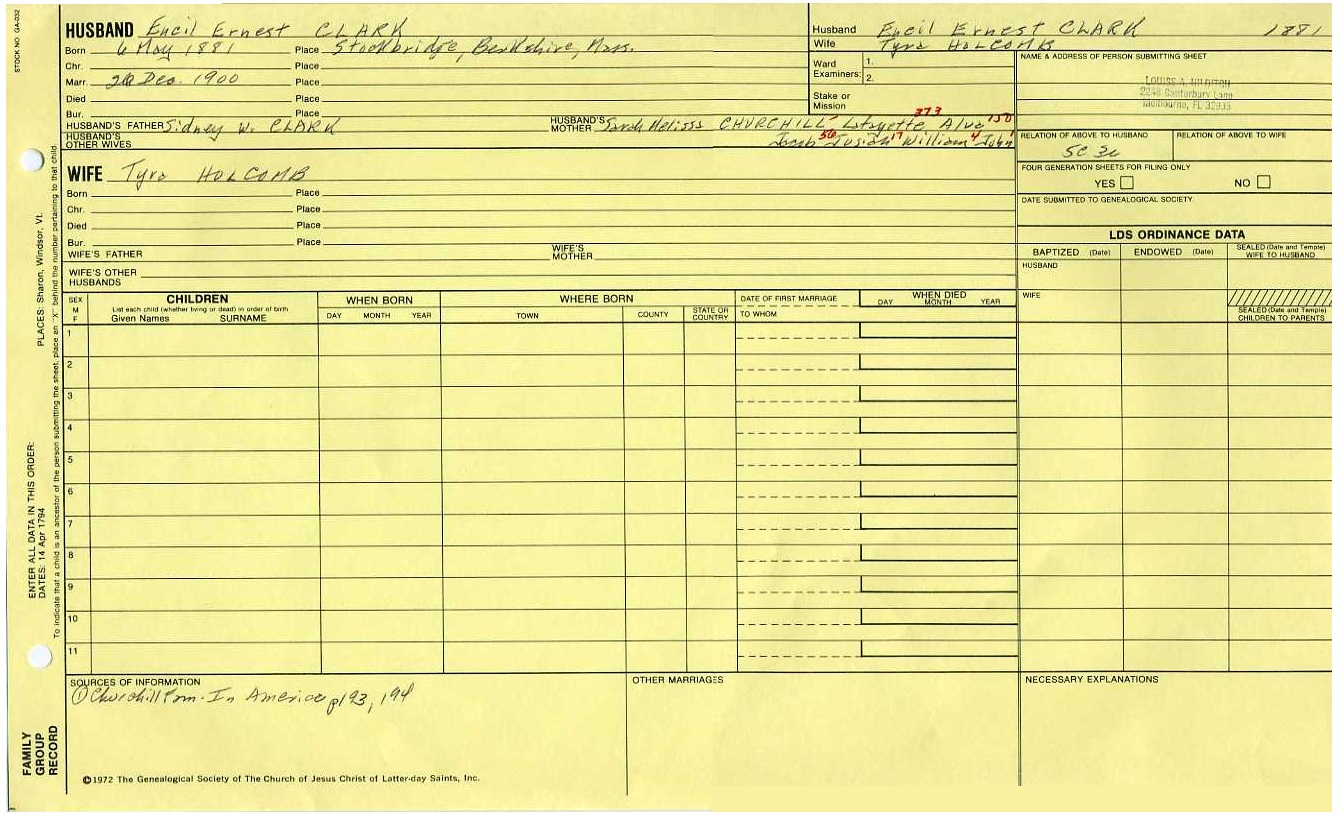 STOCK NO. GA-032
HUSBAND Encil Ernest CLARK
Born 6 May 1881 Place Stockbridge, Berkshire, Mass.
Chr. Place
Marr. 26 Dec. 1900 Place
Died Place
Bur. Place
HUSBAND'S FATHER Sidney W. CLARK HUSBAND'S MOTHER Sarah Melissa CHURCHILL Lafayette 373 Alva 150
HUSBAND'S OTHER WIVES Jacob 56 Josiah 17 William 4 John 1
WIFE Tyra HOLCOMB
Born Place
Chr. Place
Died Place
Bur. Place
WIFE'S FATHER WIFE'S MOTHER
WIFE'S OTHER HUSBANDS
Husband Encil Ernest CLARK 1881
Wife Tyra HOLCOMB
Ward Examiners: 1.
2.
Stake or Mission
NAME & ADDRESS OF PERSON SUBMITTING SHEET
LOUISE A.
2248 Canterbury Lane
Melbourne, FL 32935
RELATION OF ABOVE TO HUSBAND RELATION OF ABOVE TO WIFE
5C
FOUR GENERATION SHEETS FOR FILING ONLY
YES NO
DATE SUBMITTED TO GENEALOGICAL SOCIETY
LDS ORDINANCE DATA
BAPTIZED (Date) ENDOWED (Date) SEALED (Date and Temple) WIFE TO HUSBAND
HUSBAND
WIFE
SEALED (Date and Temple) CHILDREN TO PARENTS
SEX M F
CHILDREN
List each child (whether living or dead) in order of birth
Given Names SURNAME
WHEN BORN
DAY MONTH YEAR
WHERE BORN
TOWN COUNTY STATE OR COUNTRY
DATE OF FIRST MARRIAGE
TO WHOM
WHEN DIED
DAY MONTH YEAR
1
2
3
4
5
6
7
8
9
10
11
SOURCES OF INFORMATION
① Churchill Fam. In America p193, 194
OTHER MARRIAGES
NECESSARY EXPLANATIONS
©1972 The Genealogical Society of The Church of Jesus Christ of Latter-day Saints, Inc.
FAMILY GROUP RECORD
ENTER ALL DATA IN THIS ORDER:
DATES: 14 Apr 1794 PLACES: Sharon, Windsor, Vt.
To indicate that a child is an ancestor of the person submitting the sheet, place an "X" behind the number pertaining to that child.